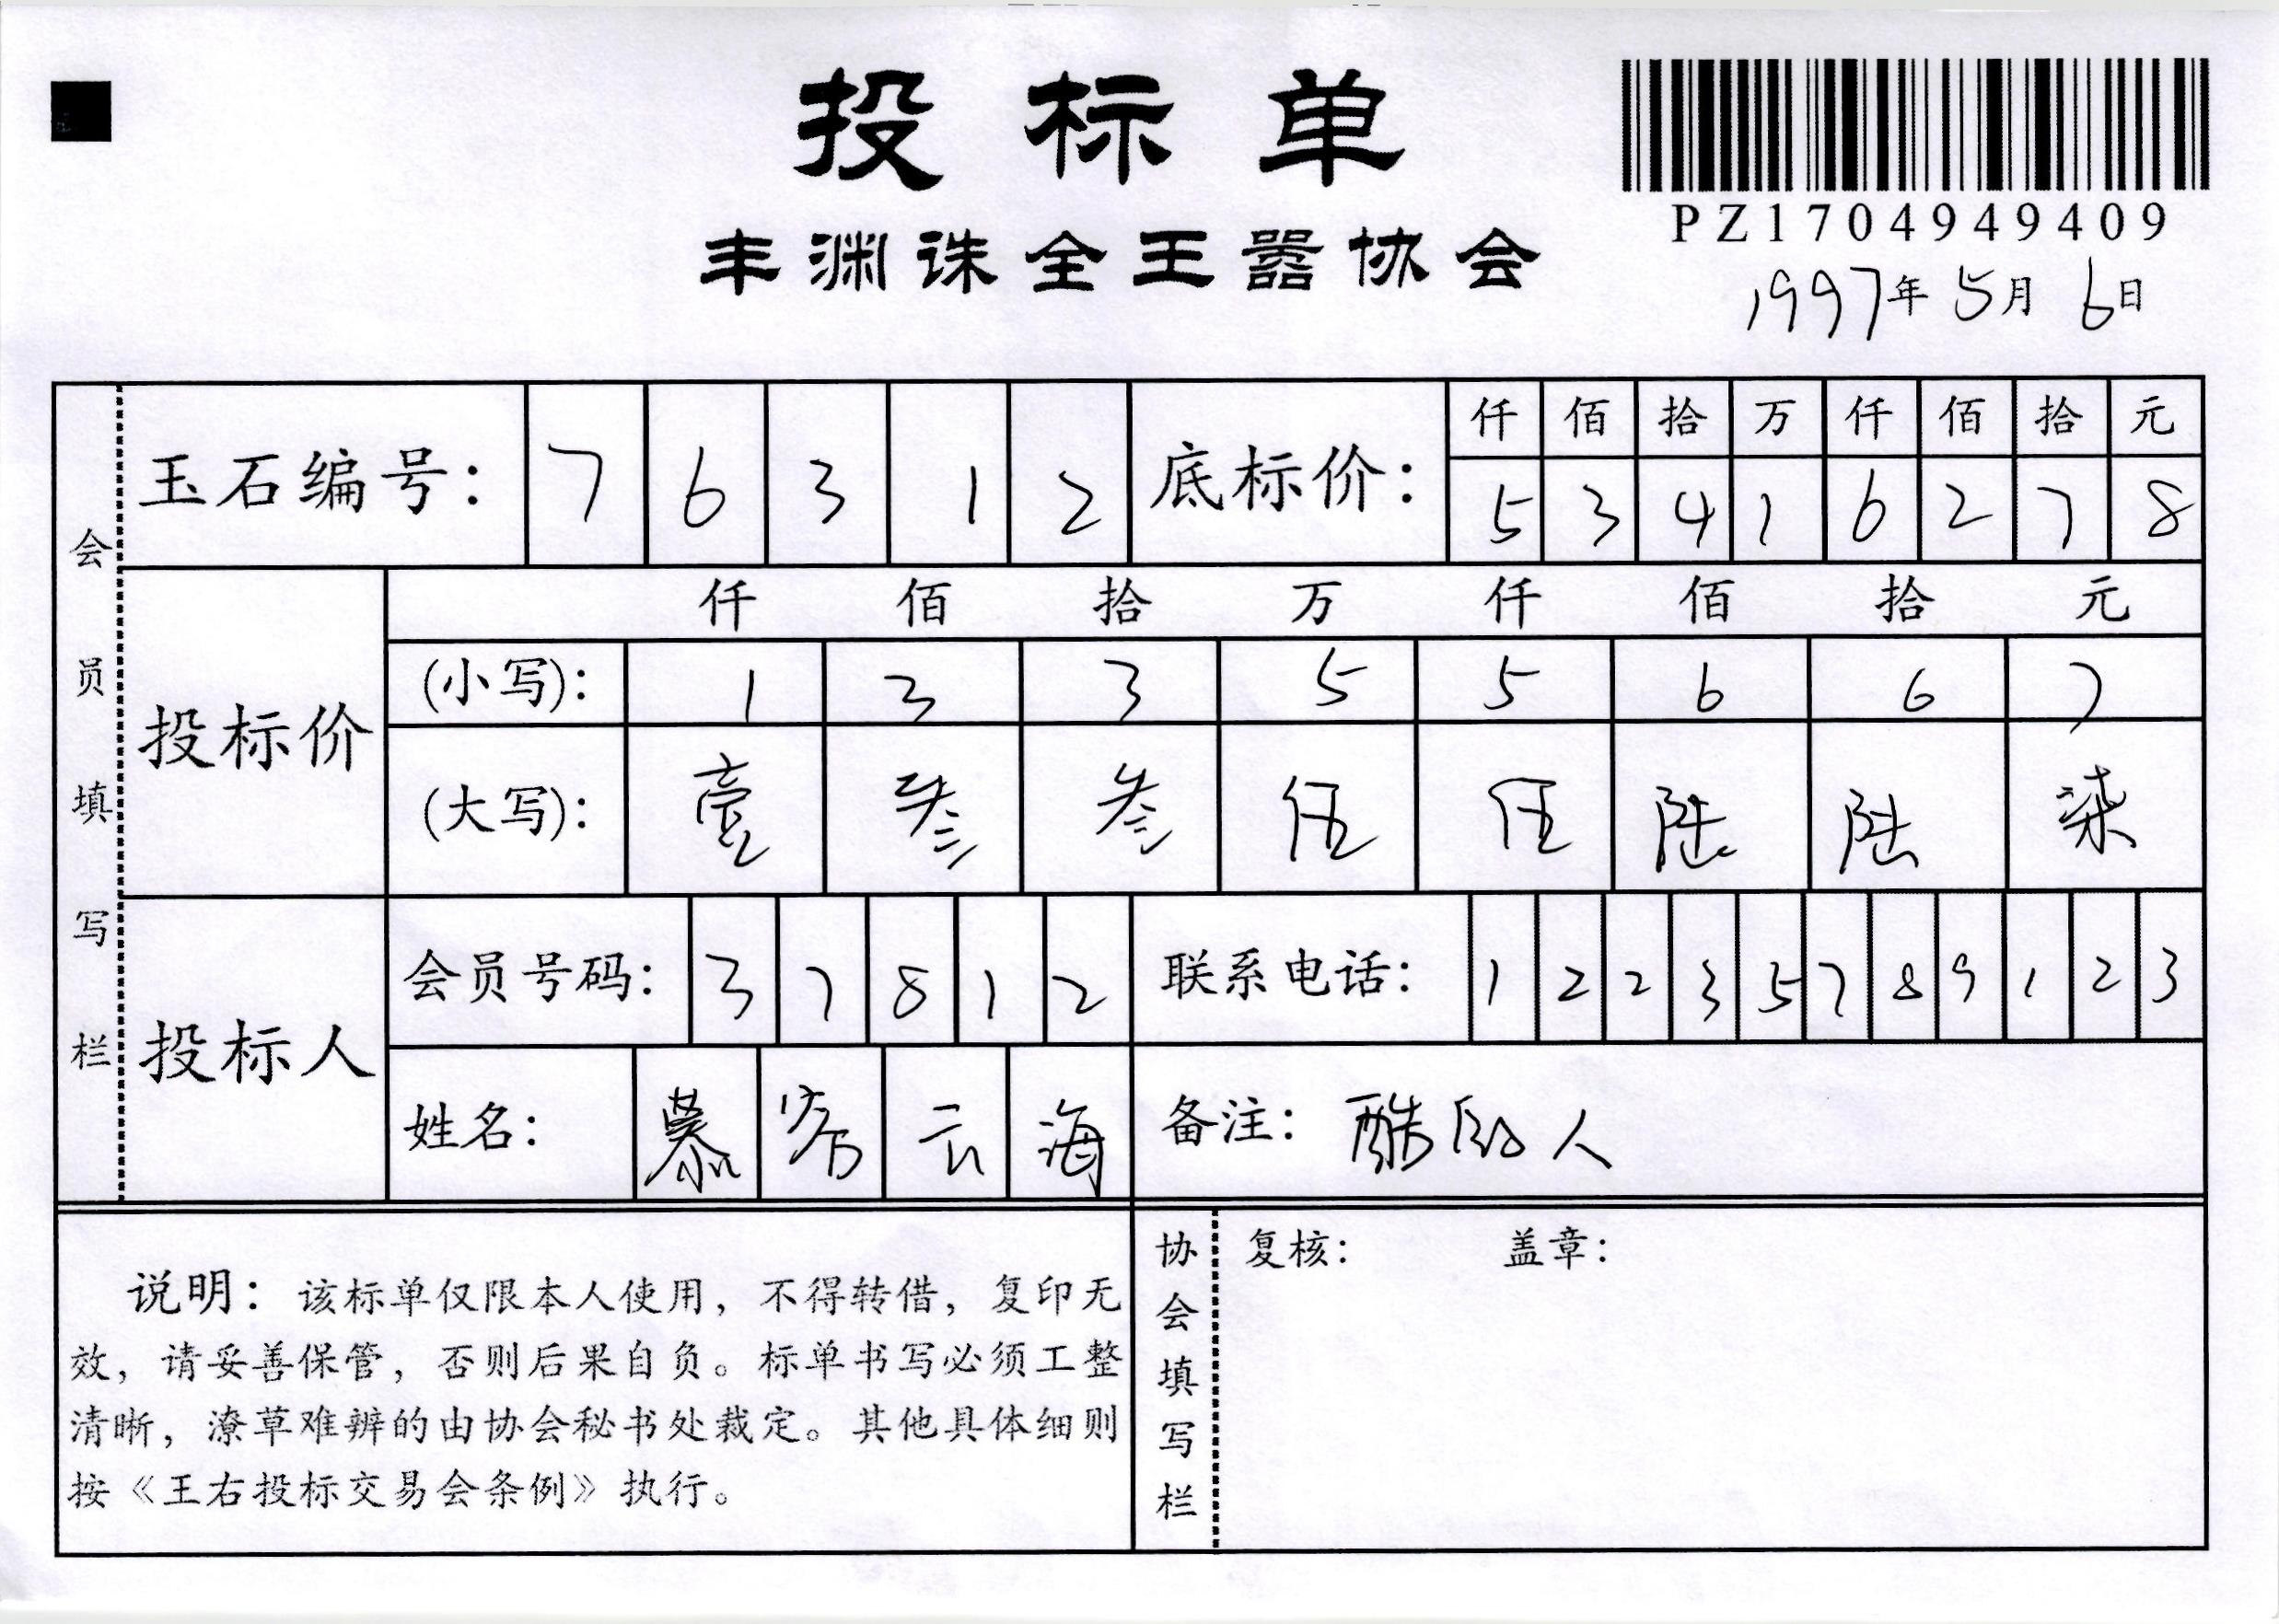 投标单
丰渊诛全王嚣协会
PZ1704949409
1997年5月6日
会员填写栏
玉石编号: 7 6 3 1 2
底标价: 仟 佰 拾 万 仟 佰 拾 元
5 3 4 1 6 2 7 8
投标价
仟 佰 拾 万 仟 佰 拾 元
(小写): 1 3 3 5 5 6 6 7
(大写): 壹 叁 叁 伍 伍 陆 陆 柒
投标人
会员号码: 3 7 8 1 2
联系电话: 1 2 2 3 5 7 8 9 1 2 3
姓名: 慕 容 云 海
备注: 酷的人
说明: 该标单仅限本人使用, 不得转借, 复印无
效, 请妥善保管, 否则后果自负。标单书写必须工整
清晰, 潦草难辨的由协会秘书处裁定。其他具体细则
按《王右投标交易会条例》执行。
协会填写栏
复核: 盖章: